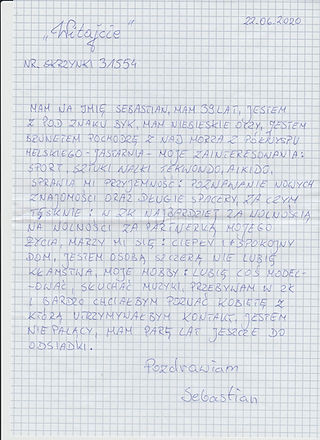 22.06.2020
„Witajcie"
NR. SKRZYNKI 31554
MAM NA IMIĘ SEBASTIAN, MAM 39 LAT, JESTEM
Z POD ZNAKU BYK, MAM NIEBIESKIE OCZY, JESTEM
BRUNETEM POCHODZĘ Z NAD MORZA Z PÓŁWYSPU
HELSKIEGO - JASTARNIA - MOJE ZAINTERESOWANIA:
SPORT, SZTUKI WALKI TEKWONDO, AIKIDO,
SPRAWIA MI PRZYJEMNOŚĆ: POZNAWANIE NOWYCH
ZNAJOMOŚCI ORAZ DŁUGIE SPACERY, ZA CZYM
TĘSKNIE: W ZK NAJBARDZIEJ ZA WOLNOŚCIĄ
NA WOLNOŚCI ZA PARTNERKĄ MOJEGO
ŻYCIA, MARZY MI SIĘ: CIEPŁY I SPOKOJNY
DOM, JESTEM OSOBĄ SZCZERĄ NIE LUBIĘ
KŁAMSTWA, MOJE HOBBY: LUBIĘ COŚ MODEL-
OWAĆ, SŁUCHAĆ MUZYKI, PRZEBYWAM W ZK
I BARDZO CHCIAŁBYM POZNAĆ KOBIETĘ Z
KTÓRĄ UTRZYMYWAŁBYM KONTAKT, JESTEM
NIEPALĄCY, MAM PARĘ LAT JESZCZE DO
ODSIADKI.
Pozdrawiam
Sebastian